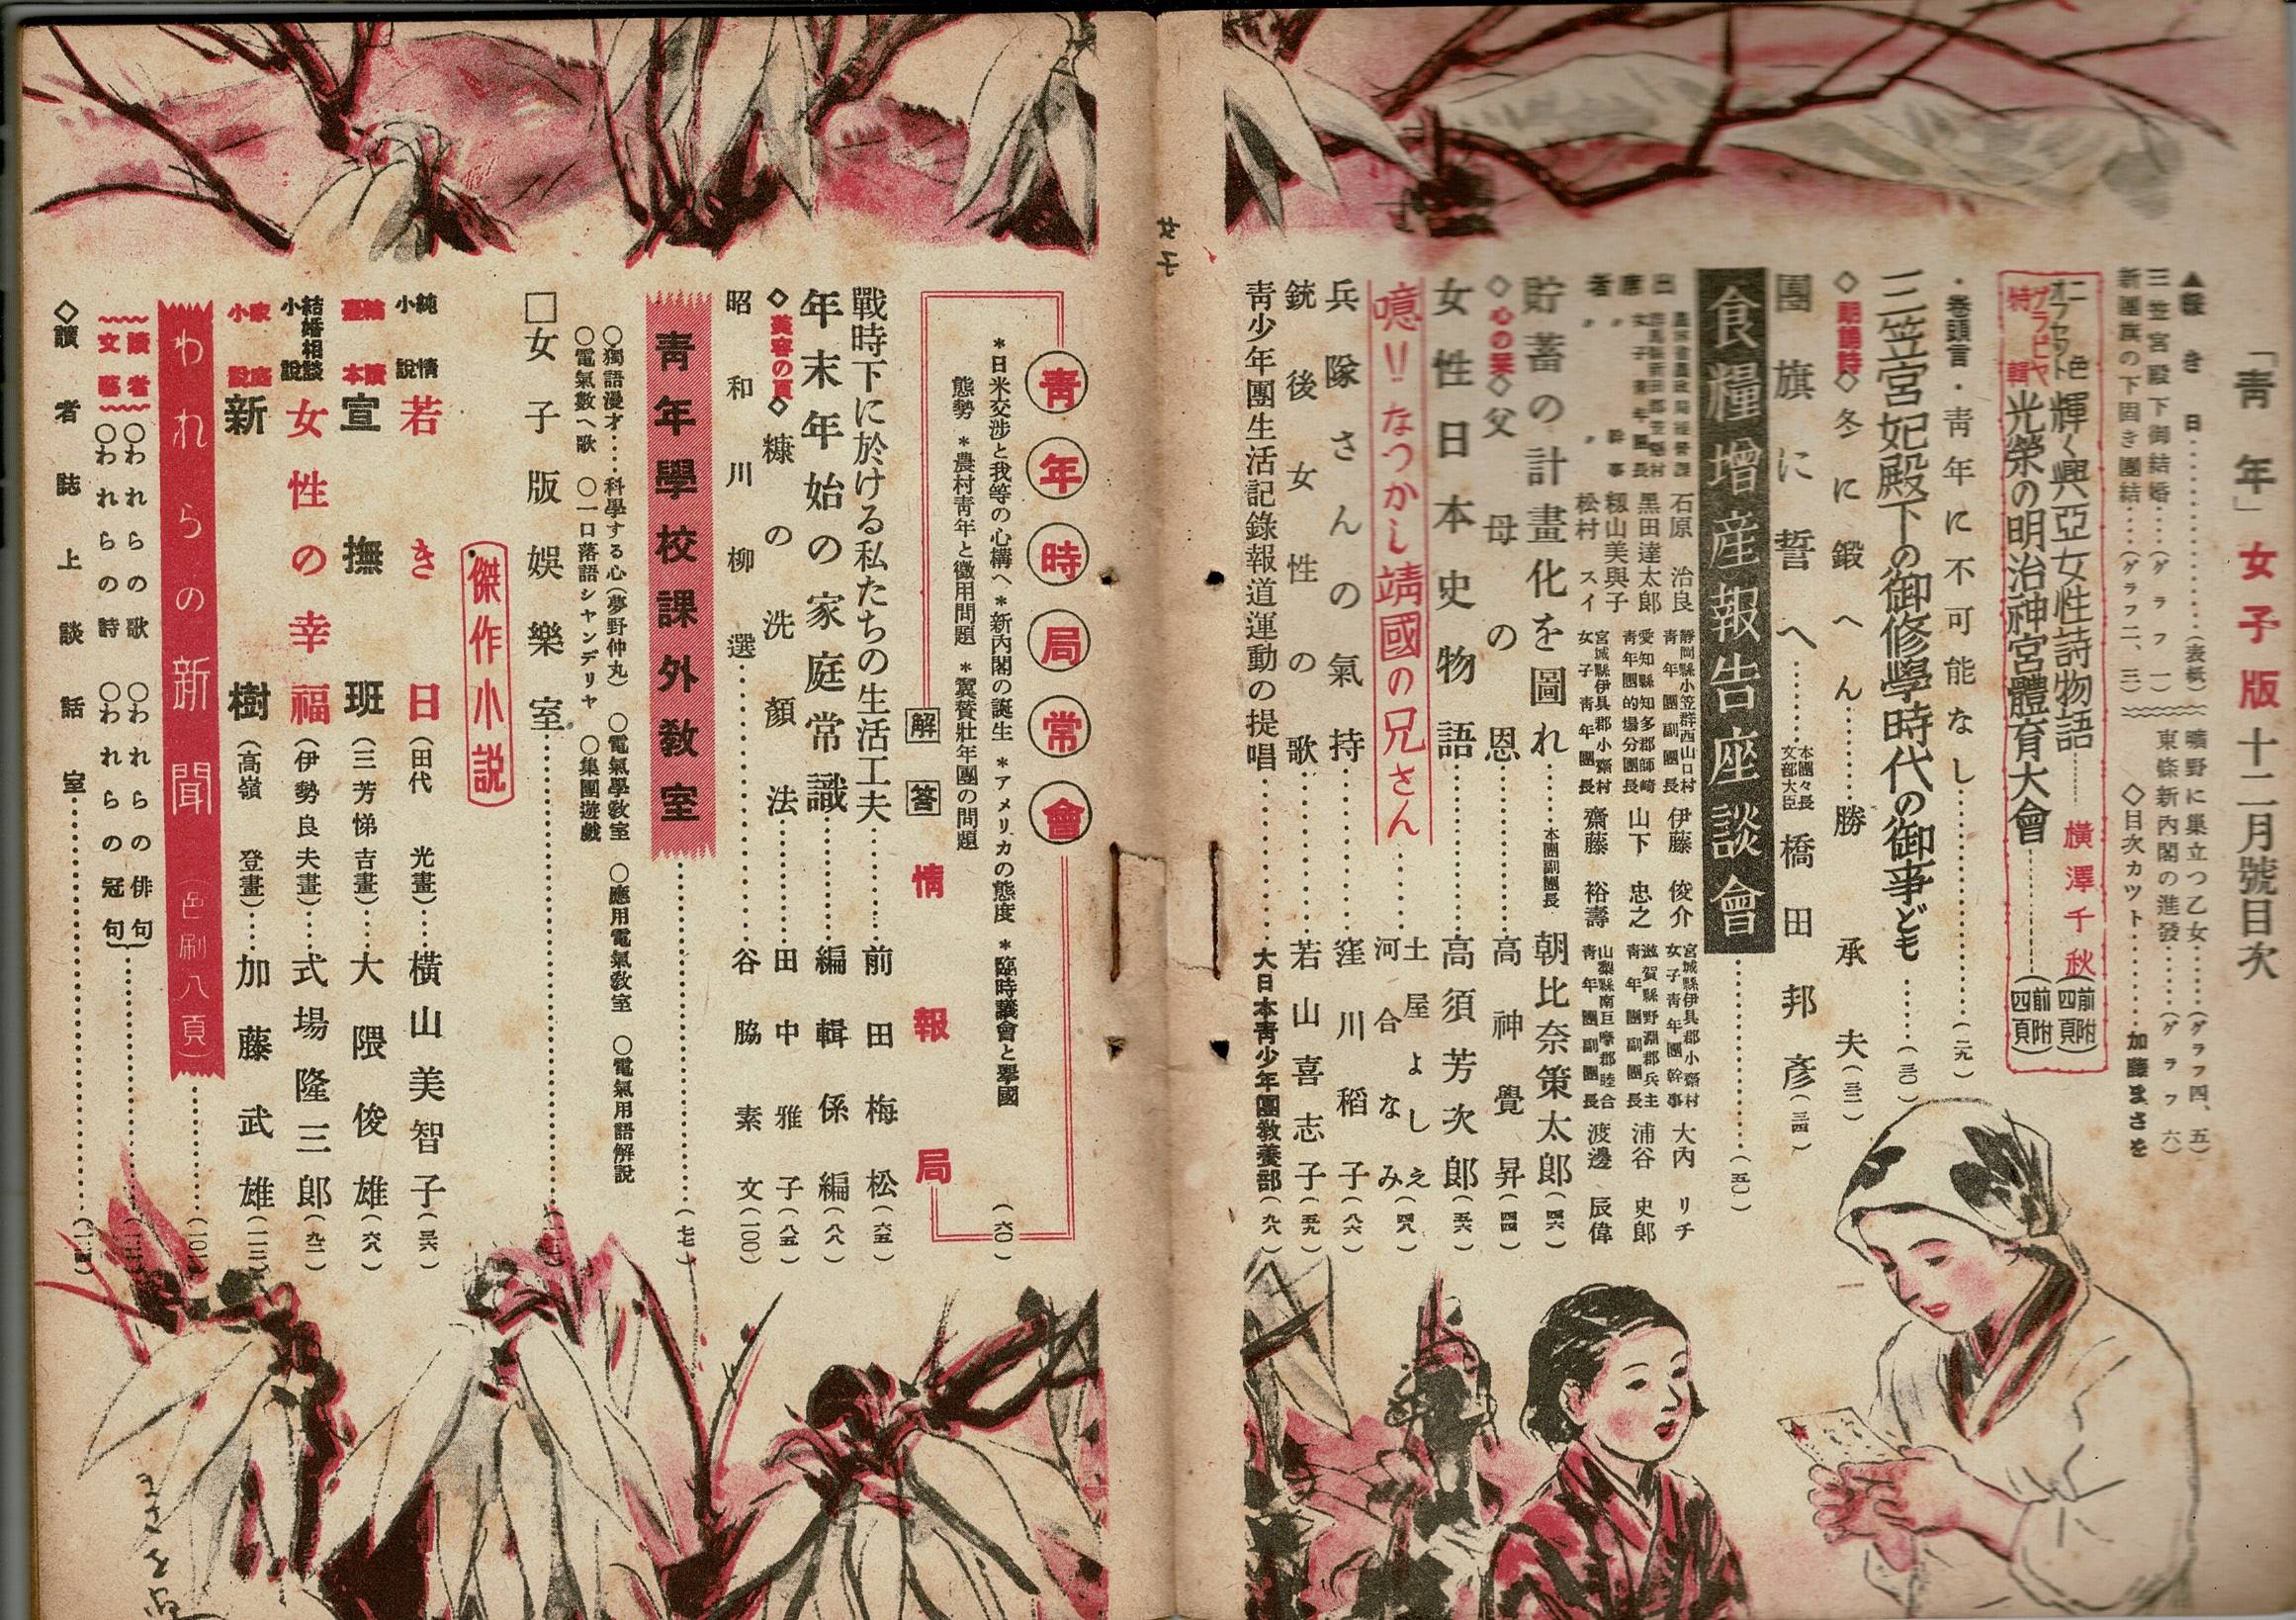 「青年」女子版 十二月號目次
▲輝き日……………(表紙)
三笠宮殿下御結婚……(グラフ一)
新團旗の下固き團結……(グラフ二、三)
曠野に巣立つ乙女……(グラフ四、五)
東條新內閣の進發……(グラフ六)
◇目次カツト………加藤まさを
二色オフセット 輝く興亞女性詩物語……橫澤千秋(前附四頁)
グラビヤ特輯 光榮の明治神宮體育大會……(前附四頁)
・卷頭言・靑年に不可能なし……(二九)
三笠宮妃殿下の御修學時代の御事ども……(三〇)
◇朗誦詩◇冬に鍛へん……勝承夫(三二)
團旗に誓へ……本團々長 文部大臣 橋田邦彥(三四)
食糧增産報告座談會……(五〇)
出席者
石原治良
黑田達太郎
女子靑年團幹事 籾山美與子
〃 〃 松村スイ
靜岡縣小笠群西山口村靑年團副團長 伊藤俊介
愛知縣知多郡師崎靑年團的場分團長 山下忠之
宮城縣伊具郡小齋村女子靑年團長 齋藤裕壽
宮城縣伊具郡小齋村女子靑年團幹事 大內リチ
滋賀縣野洲郡兵主靑年團副團長 浦谷史郎
山梨縣南巨摩郡睦合靑年團副團長 渡邊辰偉
貯蓄の計畫化を圖れ……本團副團長 朝比奈策太郎(四六)
◇心の栞◇父母の恩……高神覺昇(四四)
女性日本史物語……高須芳次郎(五六)
噫!!なつかし靖國の兄さん……土屋よしえ 河合なみ(四八)
兵隊さんの氣持……窪川稻子(八六)
銃後女性の歌……若山喜志子(五九)
靑少年團生活記錄報道運動の提唱……大日本靑少年團敎養部(九八)
女子
靑年時局常會
*日米交涉と我等の心構へ *新內閣の誕生 *アメリカの態度 *臨時議會と擧國
態勢 *農村靑年と徵用問題 *翼贊壯年團の問題
解答 情報局(六〇)
戰時下に於ける私たちの生活工夫……前田梅松(六五)
年末年始の家庭常識……編輯係編(八八)
◇美容の頁◇糠の洗顏法……田中雅子(八五)
昭和川柳選……谷脇素文(一〇〇)
靑年學校課外敎室……(七七)
○獨語漫才……科學する心(夢野仲丸) ○電氣學敎室 ○應用電氣敎室 ○電氣用語解說
○電氣數へ歌 ○一口落語シャンデリヤ ○集團遊戲
□女子版娛樂室……
傑作小說
純情小說 若き日(田代光畫)……橫山美智子(三六)
輪讀臺本 宣撫班(三芳悌吉畫)……大隈俊雄(六八)
結婚相談小說 女性の幸福(伊勢良夫畫)……式場隆三郎(九二)
家庭小說 新樹(高嶺登畫)……加藤武雄(一一二)
われらの新聞(色刷八頁)……(一〇一)
讀者文藝 ○われらの歌 ○われらの俳句
○われらの詩 ○われらの冠句……
◇讀者誌上談話室……
まさを畫